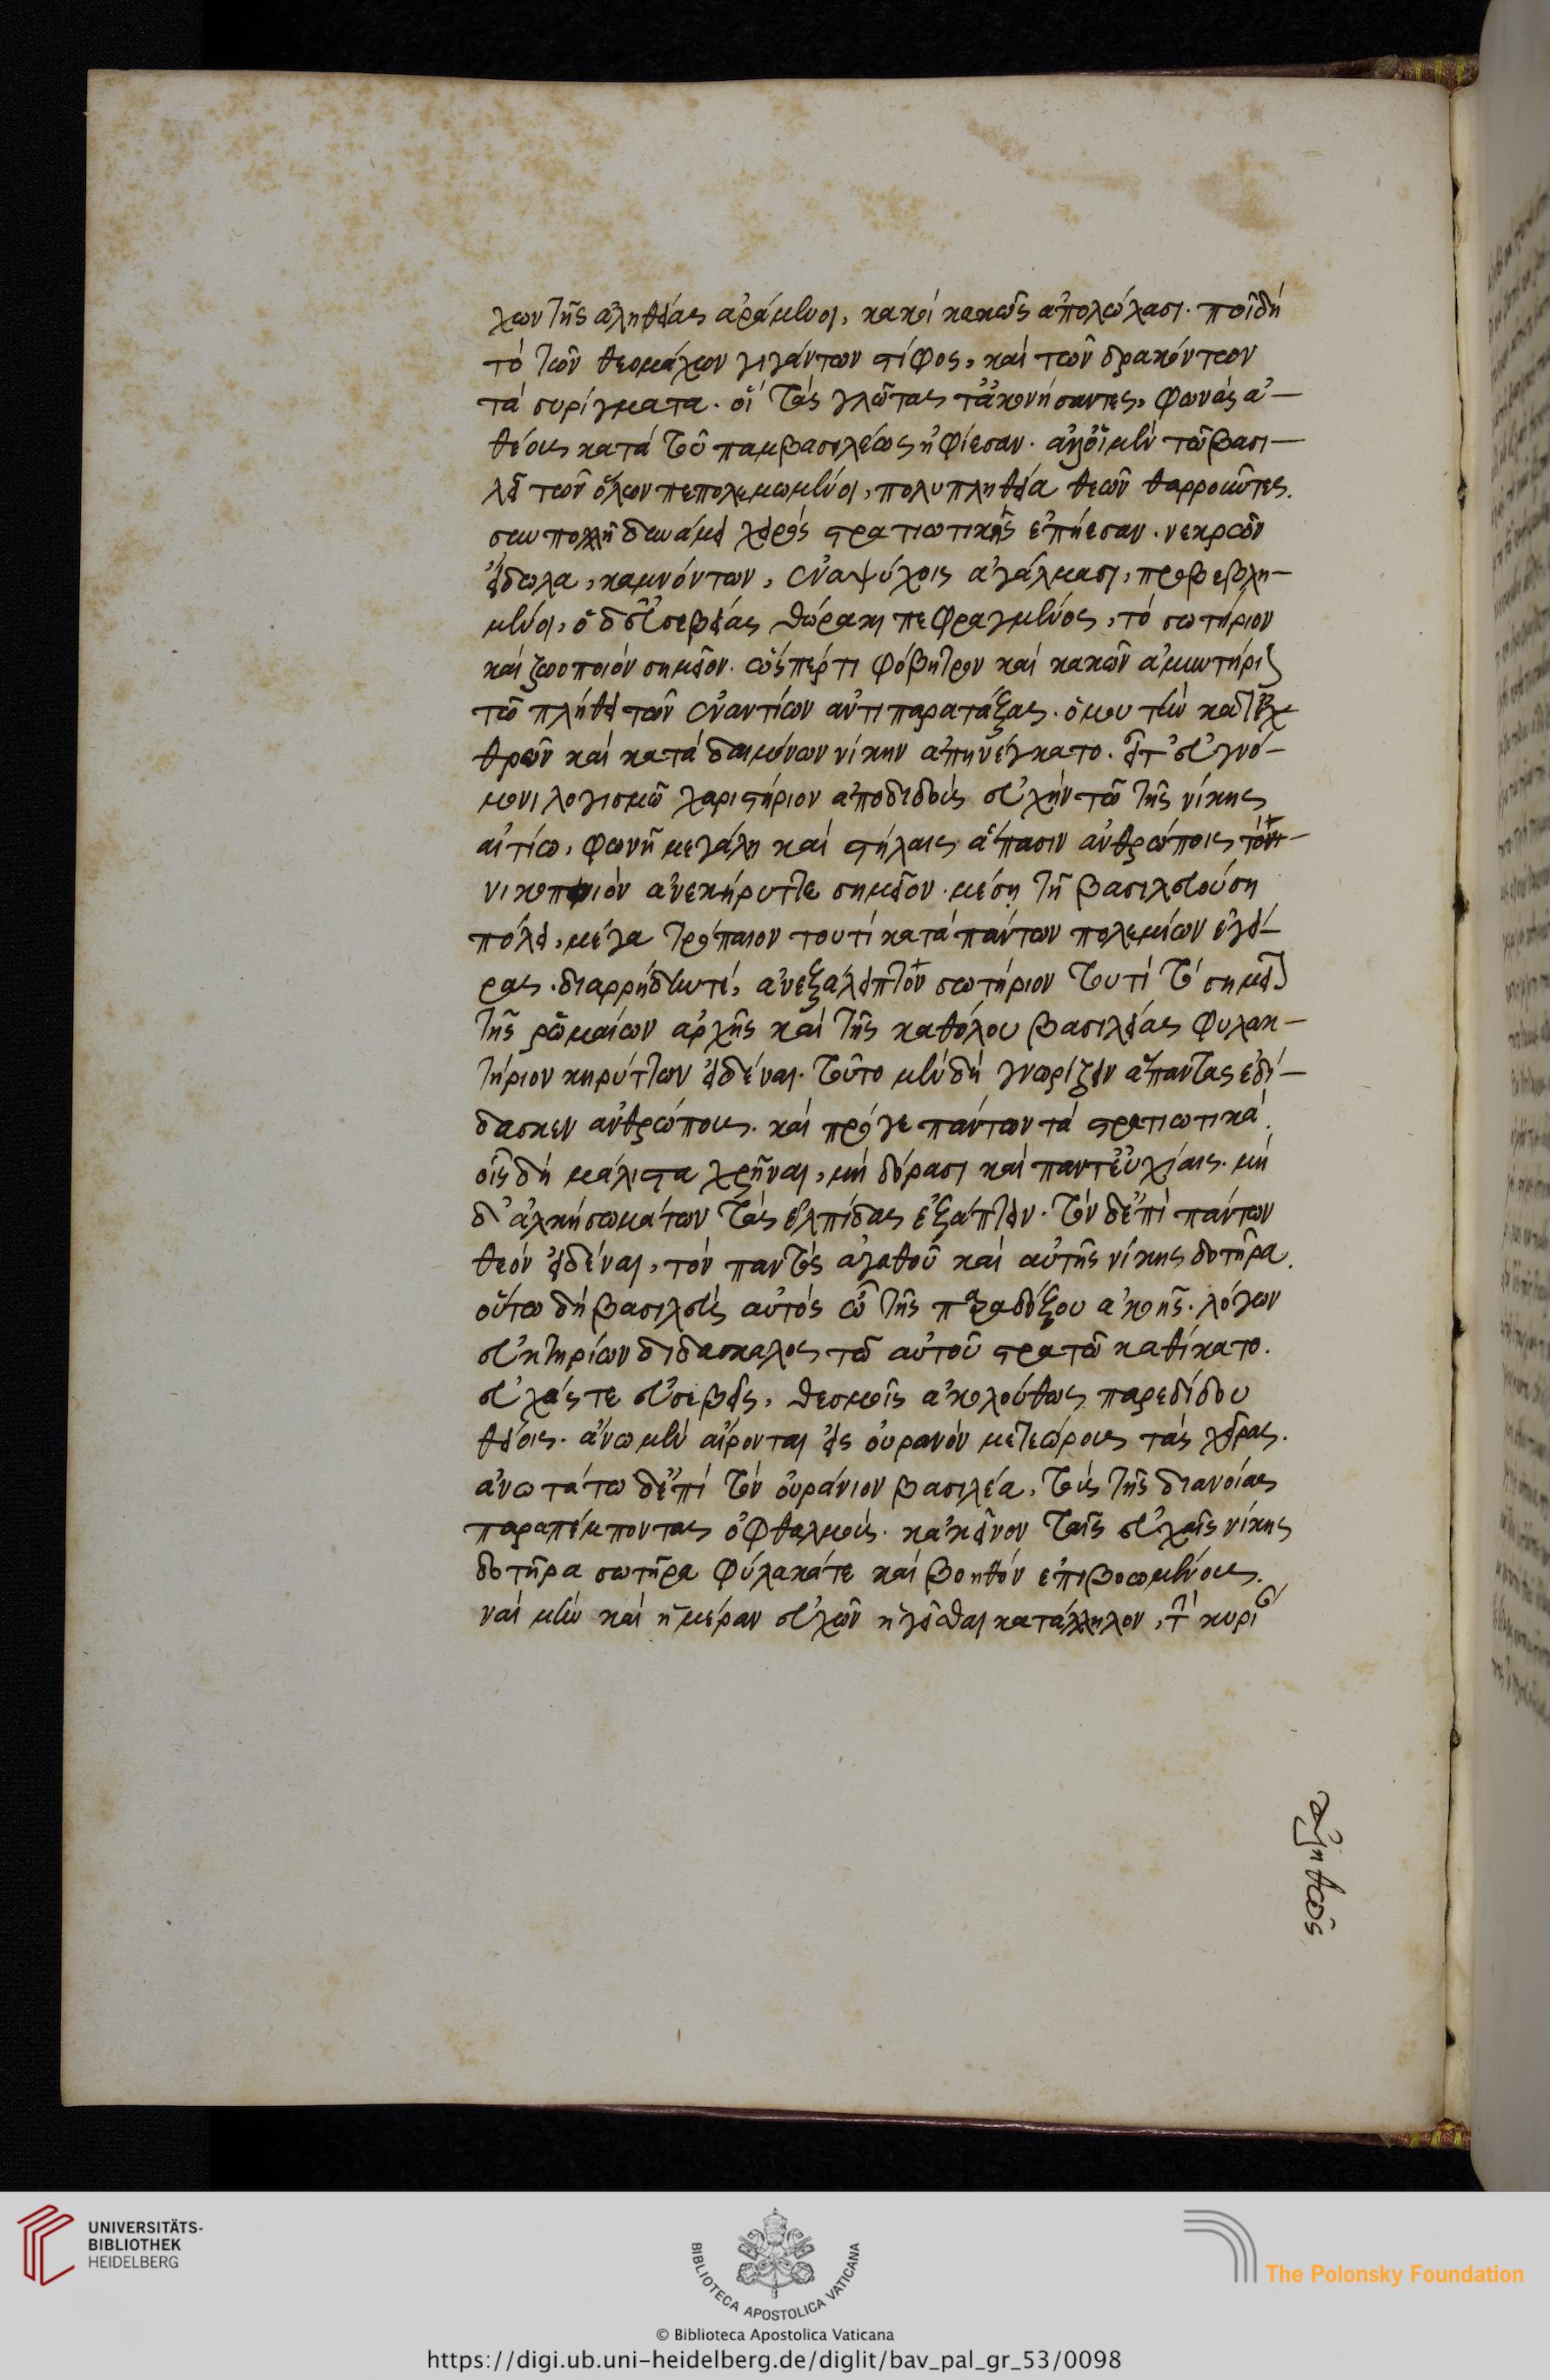 χων τῆς ἀληθείας ἀράμενοι, κακοὶ κακῶς ἀπολώλασι. ποῖ δὴ
τὸ τῶν θεομάχων γιγάντων στίφος, καὶ τῶν δρακόντων
τὰ συρίγματα. οἳ τὰς γλώττας τἀκονήσαντες, φωνὰς ἀ-
θέους κατὰ τοῦ παμβασιλέως ἠφίεσαν. ἀλλ' οἱ μὲν τῶ βασι-
λεῖ τῶν ὅλων πεπολεμωμένοι, πολυπληθεία θεῶν θαρροῦντες.
συν πολλῆ δυνάμει χειρὸς στρατιωτικῆς ἐπήεσαν. νεκρῶν
εἴδωλα, καμνόντων, ἐν ἀψύχοις ἀγάλμασι, προβεβλη-
μένοι, ὁ δ' εὐσεβείας θώρακι πεφραγμένος, τὸ σωτήριον
καὶ ζωοποιὸν σημεῖον. ὥσπερ τι φόβητρον καὶ κακῶν ἀμυντήριον
τῶ πλήθει τῶν ἐναντίων ἀντιπαρατάξας. ὁμοῦ τὴν κατ' ἐχ
θρῶν καὶ κατὰ δαιμόνων νίκην ἀπηνέγκατο. εἶτ' εὐγνό-
μονι λογισμῶ χαριστήριον ἀποδιδοὺς εὐχὴν τῶ τῆς νίκης
αἰτίω, φωνῆ μεγάλη καὶ στήλαις ἅπασιν ἀνθρώποις τὸ
νικοποιὸν ἀνεκήρυττε σημεῖον. μέση τῆ βασιλευούση
πόλει, μέγα τρόπαιον τουτὶ κατὰ πάντων πολεμίων ἐγεί-
ρας. διαρρήδην τέ, ἀνεξάλειπτον σωτήριον τουτὶ τὸ σημεῖον
τῆς ῥωμαίων ἀρχῆς καὶ τῆς καθόλου βασιλείας φυλακ-
τήριον κηρύττων εἰδέναι. τοῦτο μὲν δὴ γνωρίζειν ἅπαντας ἐδί-
δασκεν ἀνθρώπους. καὶ πρό γε πάντων τὰ στρατιωτικὰ.
οἷς δὴ μάλιστα χρῆναι, μὴ δόρασι καὶ παντευχίαις. μὴ
δ' ἀλκῆ σωμάτων τὰς ἐλπίδας ἐξάπτειν. τὸν δ' ἐπὶ πάντων
θεὸν εἰδέναι, τὸν παντὸς ἀγαθοῦ καὶ αὐτῆς νίκης δοτῆρα.
οὕτω δὴ βασιλεὺς αὐτὸς ὢ τῆς παραδόξου ἀκοῆς. λόγων
εὐκτηρίων διδάσκαλος τῶ αὐτοῦ στρατῶ καθίκατο.
εὐχάς τε εὐσεβεῖς, θεσμοῖς ἀκολούθως παρεδίδου
θείοις. ἄνω μὲν αἴρονται εἰς οὐρανὸν μετεώρους τὰς χεῖρας.
ἀνωτάτω δ' ἐπὶ τὸν οὐράνιον βασιλέα, τοὺς τῆς διανοίας
παραπέμποντας ὀφθαλμούς. κἀκεῖνον ταῖς εὐχαῖς νίκης
δοτῆρα σωτῆρα φύλακά τε καὶ βοηθὸν ἐπιβοωμένους.
ναὶ μὴν καὶ ἡμέραν εὐχῶν ἡγεῖσθαι κατάλληλον, τὴν κυρι
ἀληθῶς
UNIVERSITÄTS-
BIBLIOTHEK
HEIDELBERG
BIBLIOTECA APOSTOLICA VATICANA
The Polonsky Foundation
© Biblioteca Apostolica Vaticana
https://digi.ub.uni-heidelberg.de/diglit/bav_pal_gr_53/0098